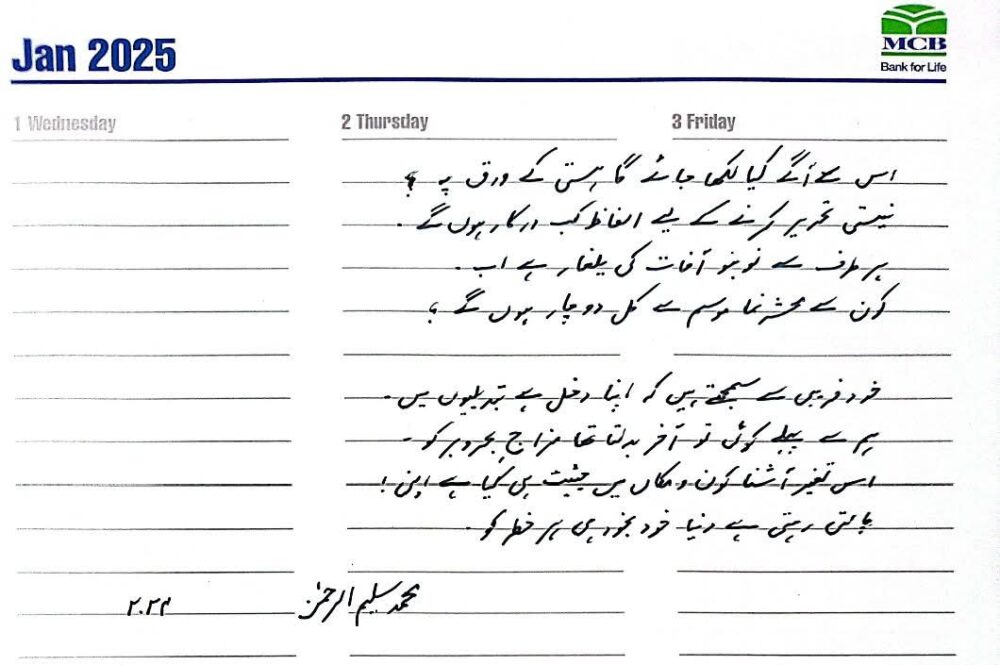 Jan 2025
MCB
Bank for Life
1 Wednesday
2 Thursday
3 Friday
اس سے آگے کیا لکھا جائے گا ہستی کے ورق پہ ؟
نیستی تحریر کرنے کے لیے الفاظ کب درکار ہوں گے ۔
ہر طرف سے نو بنو آفات کی یلغار ہے اب ۔
کون سے محشر نما موسم سے کل دوچار ہوں گے ؟
خود فریبی سے سمجھتے ہیں کہ اپنا دخل ہے تبدیلیوں میں ۔
ہم سے پہلے کوئی تو آخر بدلتا تھا مزاجِ بحر و بر کو ۔
اس تغیر آشنا کون و مکاں میں حیثیت ہی کیا ہے اپنی !
پالتی رہتی ہے دنیا خود بخود ہی ہر خطر کو ۔
محمد سلیم الرحمٰن
۲۰۲۴